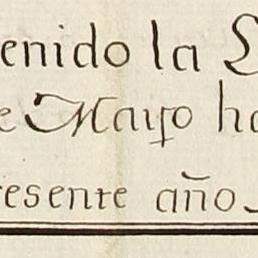 enido la L
e Mayo ha
resente año